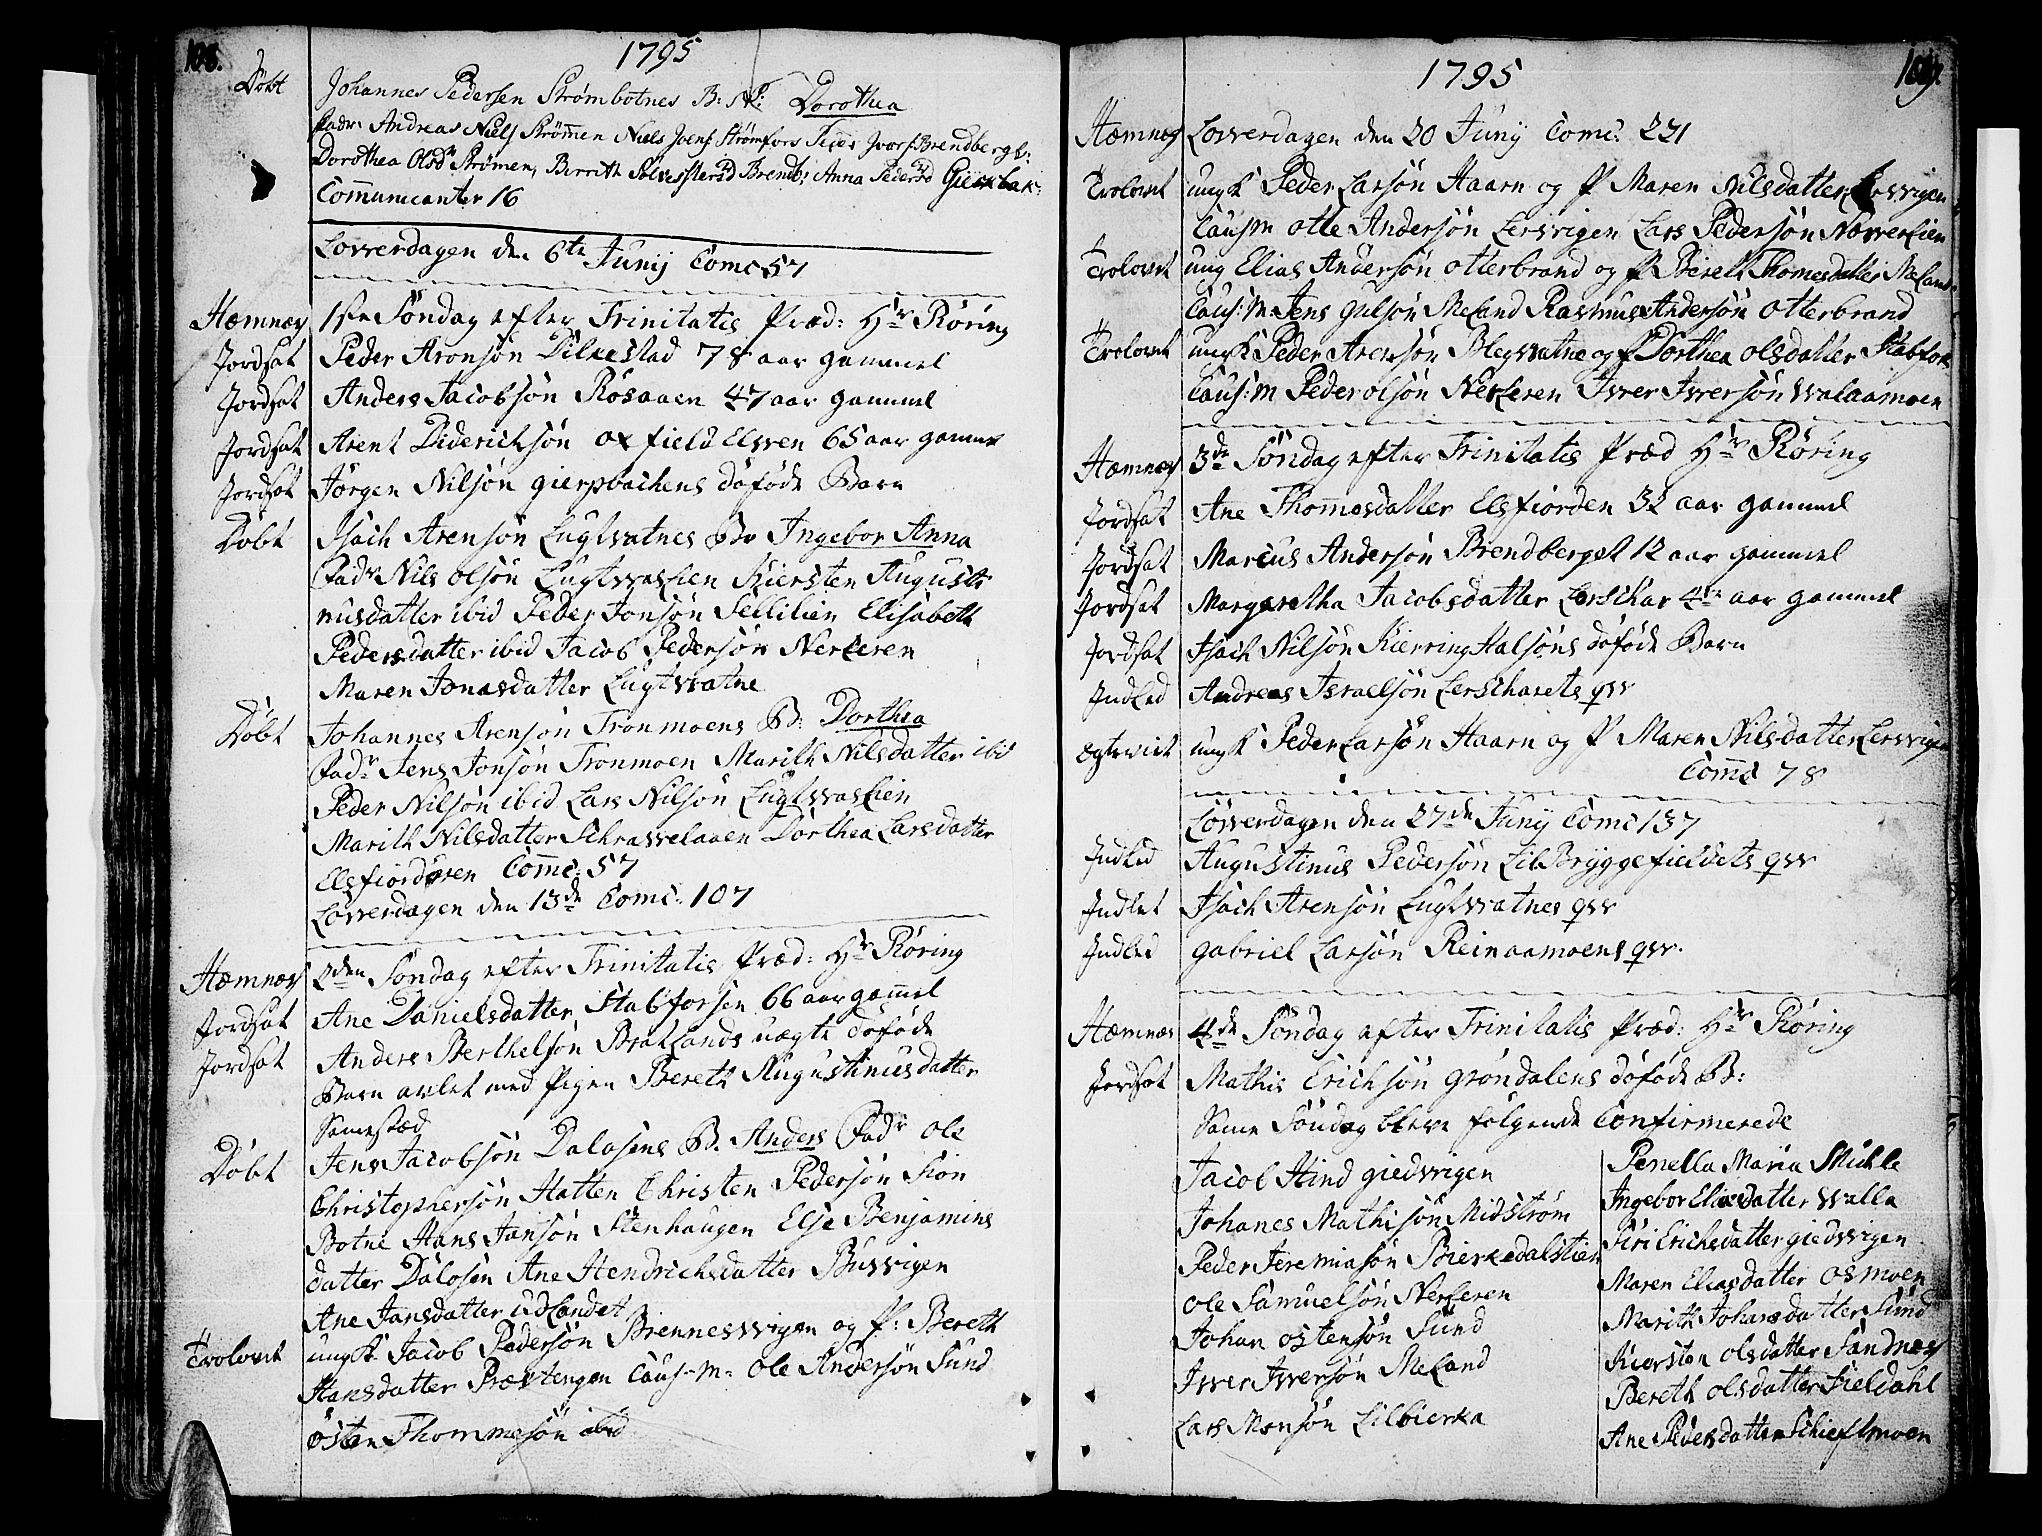 108.
1795
Döbt Johannes Pedersen Strømbotnes B: Dorothea
Fadr. Andreas Niels Strømmen Niels Joens Strømfors Peder Ivers Brendbergt:
Dorothea Olsdr Strømen, Berrith Silvestersd Brendb; Anna Pedersd
Communicanter 16
Lowerdagen den 6te Junij Comc 57
Hæmnæs 1ste Söndag efter Trinitatis Præd: Hr Röring
Jordsat Peder Aronsön Dilkestad 78 aar gammel
Jordsat Anders Jacobsön Rösaaen 47 aar gammel
Jordsat Arent Diderichsön oxfield Elwen 65 aar gamme
Jordsat Jörgen Nilsön gierpbachens döföde Barn
Döbt Isach Arensön Lugtvatnes Br Ingebor Anna
Fadr Nils olsön Lugtwaslien Kiersten Augusti
nusdatter ibid Peder Jonsön Sellilien Elisabeth
Pedersdatter ibid Jacob Pedersön Nerleren
Maren Jonasdatter Lugtwatne
Döbt Johannes Arensön Tronmoens B: Dorthea
Fadr Jens Jonsön Tronmoen Marith Nilsdatter ibid
Peder Nilsön ibid Lars Nilsön Lugtwaslien
Marith Nilsdatter Schrawelaaen Dorthea Larsdatter
Elsfiordören Comc: 57
Lowerdagen den 13de Comc: 107
Hæmnæs 2den Söndag efter Trinitatis Præd: Hr Röring
Jordsat Ane Danielsdatter Stabforsen 66 aar gammel
Jordsat Anders Berthelsön Bratlands uægte döföde
Barn avlet med Pigen Bereth Augustinusdatter
Samestæd
Döbt Jens Jacobsön Dalosens B. Anders Fadr ole
Christophersön Hatten Christen Pedersön Sion
Botne Hans Jansön Stenhaugen Else Benjamins
datter Dalosen Ane Hendrichsdatter Buswigen
Ane Jansdatter udlandet
Trolowet ungK. Jacob Pedersön Brenneswigen og P: Bereth
Hansdatter Præstengen Caus-M: Ole Andersön Sund
östen Thommesön ibid
109.
1795
Hæmnæs Lowerdagen den 20 Junij Comc. 221
Trolowet ungK Peder Larsön Haarn og P Maren Nilsdatter Lerwigen
Causm Otte Andersön Lerwigen Lars Pedersön Næwerlien
Trolowet ung Elias Andersön otterbrand og P Bereth Thomesdatter Meland
Caus:M: Jens gulsön Meland Rasmus Andersön otterbrand
Trolowet ungK Peder Arensön Blegvatne og P Dorthea olsdatter Stabfor
Caus:M Peder olsön Nerleren Iwer Iwersön walaamoen
Hæmnæs 3de Söndag efter Trinitatis Præd Hr Röring
Jordsat Ane Thommesdatter Elsfiorden 32 aar gammel
Jordsat Marcus Andersön Brendberget 12 aar gammel
Jordsat Margaretha Jacobsdatter Lerschar 4re aar gammel
Jordsat Isach Nilsön Kierring Halsöns döföde Barn
Indled Andreas Israelsön Lerscharets qvr
ægteviet ungK Peder Larsön Haarn og P Maren Nilsdatter Lerwigen
Comc 78
Lowerdagen den 27de Junij Comc 137
Indled Augustinus Pedersön Lil Bryggefieldets qvr
Indlet Isach Arensön Lugtwatnes qvr
Indled gabriel Larsön Reinaamoens qvr.
Hæmnæs 4de Söndag efter Trinitatis Præd: Hr Röring
Jordsat Mathis Erichsön gröndalens döföde B:
Same Söndag blewe følgende Confirmerede
Jacob Hind giedwigen
Johanes Mathisön Midström
Peder Jeremiasön Bierkedalstien
ole Samuelsön Nerleren
Johan östensön Sund
Iwer Iwersön Meland
Lars Monsön Lilbierka
Penella Maria Michle
Ingebor Eliasdatter walla
Siri Erichsdatter giedwigen
Maren Eliasdatter osmoen
Marith Johansdatter Sund
Kiersten olsdatter Sandnæs
Bereth olsdatter Fieldahl
Ane Pedersdatter Schieflmoen